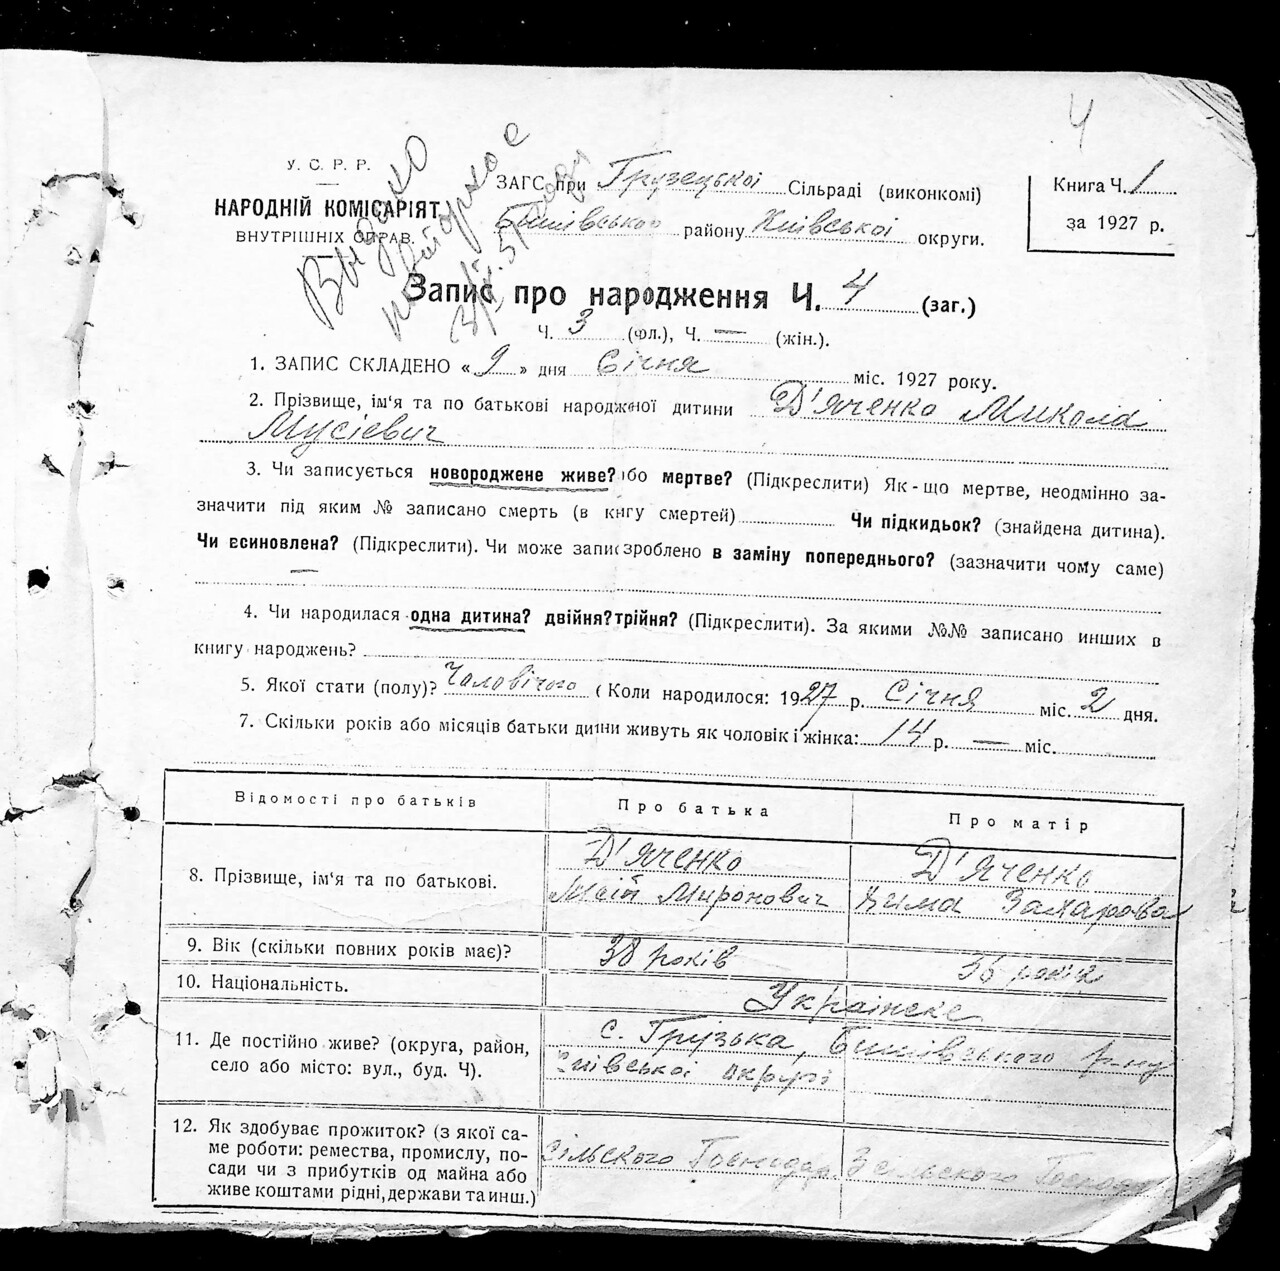 4
У. С. Р. Р.
НАРОДНІЙ КОМІСАРІЯТ
ВНУТРІШНІХ СПРАВ.
ЗАГС при Грузецької Сільраді (виконкомі)
району Київської округи.
Книга Ч. 1
за 1927 р.
Запис про народження Ч. 4 (заг.)
Ч. 3 (чол.), Ч. — (жін.).
1. ЗАПИС СКЛАДЕНО «9» дня Січня міс. 1927 року.
2. Прізвище, ім'я та по батькові народженої дитини Д'яченко Микола
Мусієвич
3. Чи записується новороджене живе? або мертве? (Підкреслити) Як-що мертве, неодмінно за-
значити під яким № записано смерть (в книгу смертей) Чи підкидьок? (знайдена дитина).
Чи всиновлена? (Підкреслити). Чи може запис зроблено в заміну попереднього? (зазначити чому саме)
—
4. Чи народилася одна дитина? двійня? трійня? (Підкреслити). За якими №№ записано инших в
книгу народжень?
5. Якої стати (полу)? Чоловічого ( Коли народилося: 1927 р. Січня міс. 2 дня.
7. Скільки років або місяців батьки дитини живуть як чоловік і жінка: 14 р. — міс.
Відомості про батьків Про батька Про матір
8. Прізвище, ім'я та по батькові.
Д'яченко Д'яченко
Миронович
9. Вік (скільки повних років має)? 38 років 36
10. Національність. Українське
11. Де постійно живе? (округа, район,
село або місто: вул., буд. Ч).
с. Грузька, р-ну
округи
12. Як здобуває прожиток? (з якої са-
ме роботи: ремества, промислу, по-
сади чи з прибутків од майна або
живе коштами рідні, держави та инш.)
сільского Господар. З сельского